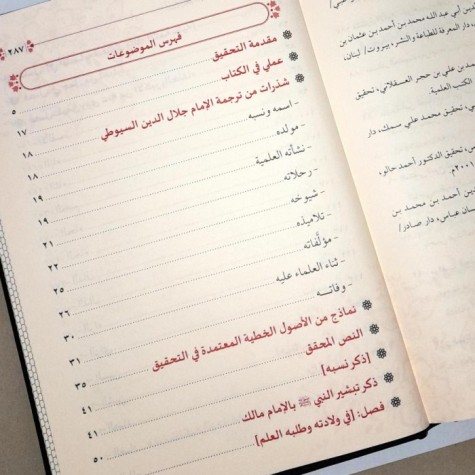 ٢٨٧
فهرس الموضوعات
مقدمة التحقيق ٥
عملي في الكتاب ١٧
شذرات من ترجمة الإمام جلال الدين السيوطي ١٨
- اسمه ونسبه ١٨
- مولده ١٩
- نشأته العلمية ١٩
- رحلاته ٢١
- شيوخه ٢٢
- تلاميذه ٢٥
- مؤلَّفاته ٢٦
- ثناء العلماء عليه ٣٠
- وفاتــه ٣١
نماذج من الأصول الخطية المعتمدة في التحقيق ٣٥
النص المحقق ٤١
[ذكر نسبه] ٤١
ذكر تبشير النبي ﷺ بالإمام مالك ٥٠
فصل: [في ولادته وطلبه العلم]
أبي عبد الله محمد بن أحمد بن عثمان بن
دار المعرفة للطباعة والنشر، بيروت/ لبنان،
بن علي بن حجر العسقلاني، تحقيق
الكتب العلمية.
تحقيق محمد علي سمك، دار
تحقيق الدكتور أحمد حالو،
بن أحمد بن محمد بن
عباس، دار صادر/